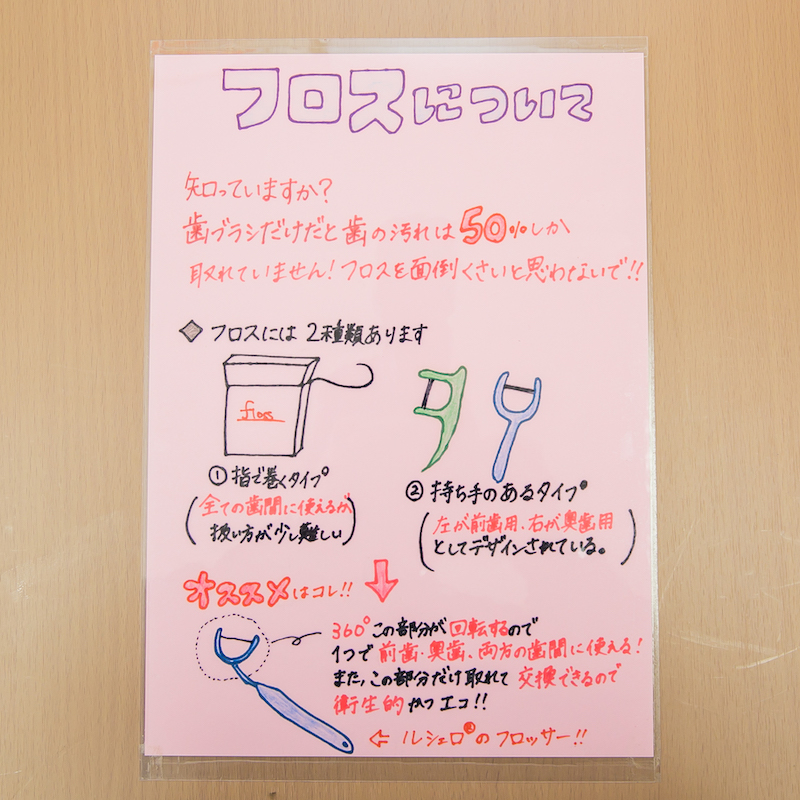 フロスについて
知っていますか?
歯ブラシだけだと歯の汚れは50%しか
取れていません!フロスを面倒くさいと思わないで!!
◆フロスには2種類あります
floss
①指で巻くタイプ
(全ての歯間に使えるが
扱い方が少し難しい)
②持ち手のあるタイプ
(左が前歯用、右が奥歯用
としてデザインされている。)
オススメはコレ!!
360°この部分が回転するので
1つで前歯・奥歯、両方の歯間に使える!
また、この部分だけ取れて交換できるので
衛生的かつエコ!!
⇦ルシェロ®のフロッサー!!